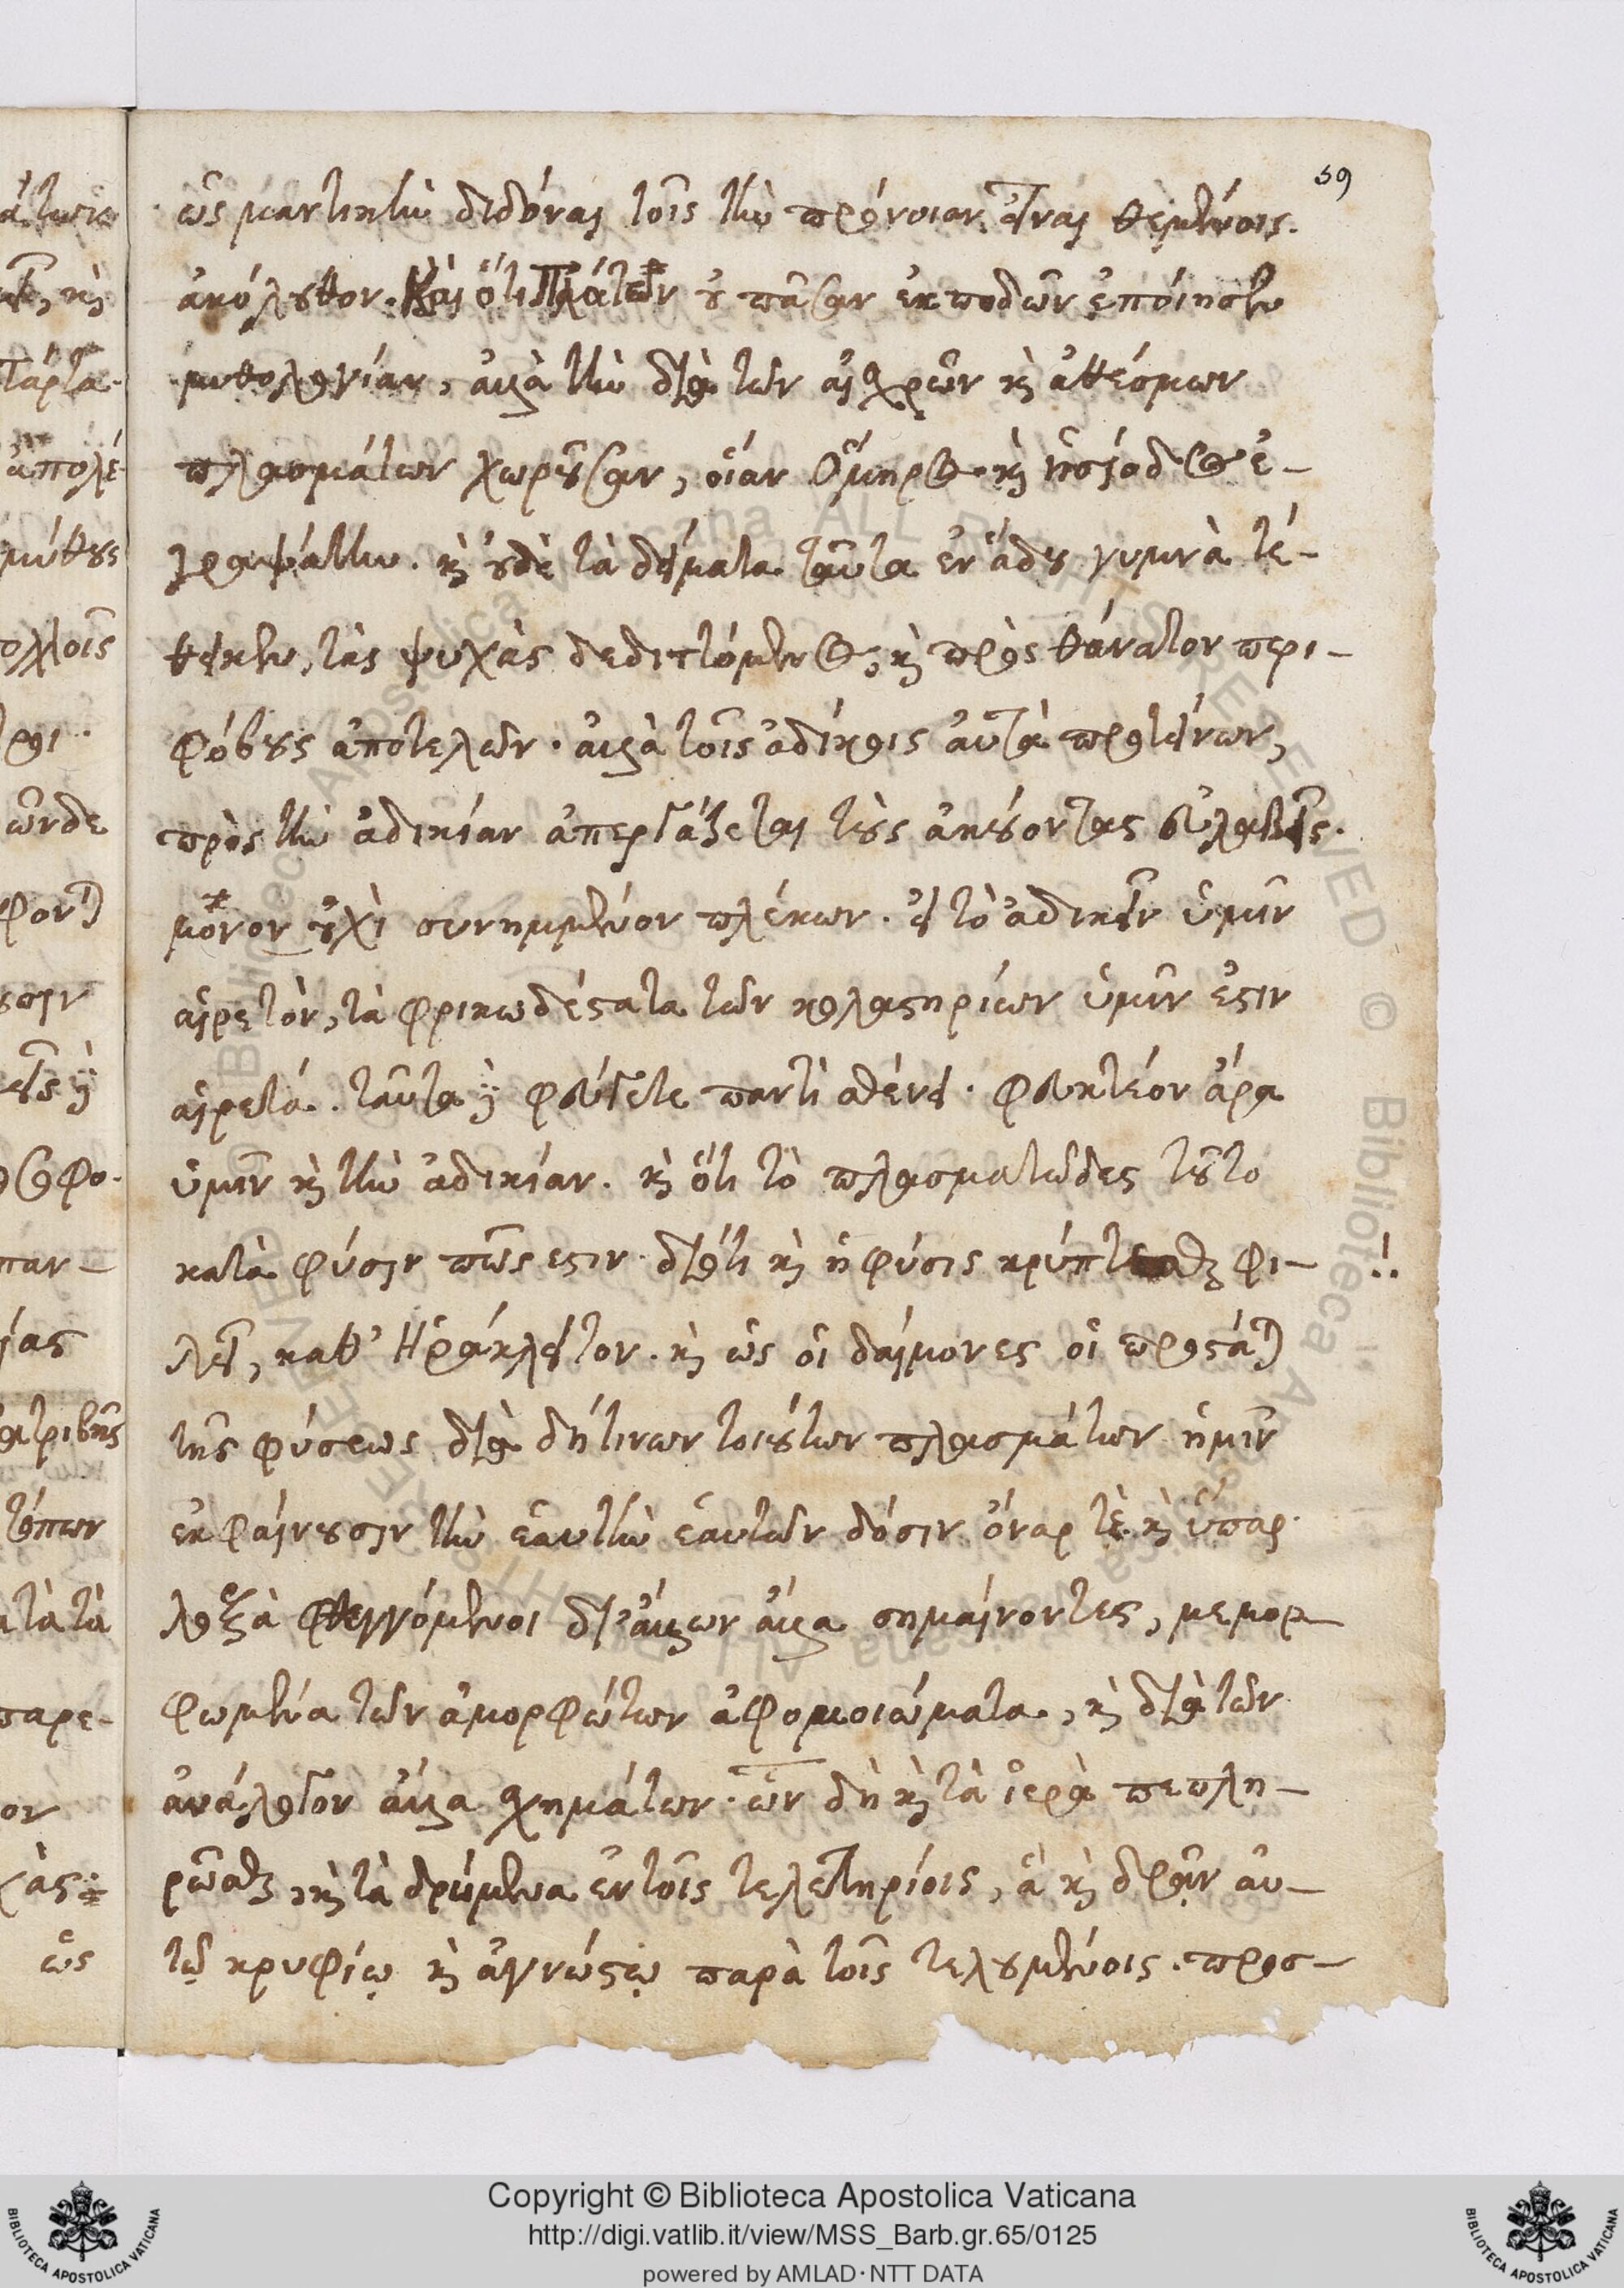 59
ὡς μαντικὴν διδόναι τοῖς τὴν πρόνοιαν εἶναι θεμένοις.
ἀκόλουθον. Καὶ ὅτι Πλάτων οὐ πᾶσαν ἐκποδῶν ἐποίησεν
μυθολογίαν, ἀλλὰ τὴν διὰ τῶν αἰσχρῶν καὶ ἀθέσμων
πλασμάτων χωροῦσαν, οἵαν Ὅμηρος καὶ Ἡσίοδος ἐ-
γραψάτην. καὶ οὐδὲ τὰ δείματα ταῦτα ἐν ἅδου γυμνὰ τέ-
θεικεν, τὰς ψυχὰς δεδιττόμενος, καὶ πρὸς θάνατον περι-
φόβους ἀποτελῶν. ἀλλὰ τοῖς ἀδίκοις αὐτὰ προτείνων,
πρὸς τὴν ἀδικίαν ἀπεργάζεται τοὺς ἀκούοντας εὐλαβεῖς.
μόνον οὐχὶ συνημμένον πλέκων. εἰ τὸ ἀδικεῖν ὑμῖν
αἱρετὸν, τὰ φρικωδέστατα τῶν κολαστηρίων ὑμῖν ἐστιν
αἱρετά. ταῦτα δὲ φεύγετε παντὶ σθένει. φευκτέον ἄρα
ὑμῖν καὶ τὴν ἀδικίαν. καὶ ὅτι τὸ πλασματῶδες τοῦτο
κατὰ φύσιν πῶς ἐστιν. διότι καὶ ἡ φύσις κρύπτεσθαι φι-
λεῖ, καθ' Ἡράκλειτον. καὶ ὡς οἱ δαίμονες οἱ προστάται
τῆς φύσεως διὰ δή τινων τοιούτων πλασμάτων ἡμῖν
ἐκφαίνουσιν τὴν ἑαυτὴν ἑαυτῶν δόσιν ὄναρ τὲ καὶ ὕπαρ.
λοξὰ φθεγγόμενοι δι' ἄλλων ἄλλα σημαίνοντες, μεμορ-
φωμένα τῶν ἀμορφώτων ἀφομοιώματα, καὶ διὰ τῶν
ἀνάλογον ἄλλα σχημάτων. ὧν δὴ καὶ τὰ ἱερὰ πεπλη-
ρῶσθαι, καὶ τὰ δρώμενα ἐν τοῖς τελεστηρίοις, ἃ καὶ δρᾷν αὐ-
τῷ κρυφίῳ καὶ ἀγνώστῳ παρὰ τοῖς τελουμένοις. προσ-
Copyright © Biblioteca Apostolica Vaticana
http://digi.vatlib.it/view/MSS_Barb.gr.65/0125
powered by AMLAD·NTT DATA